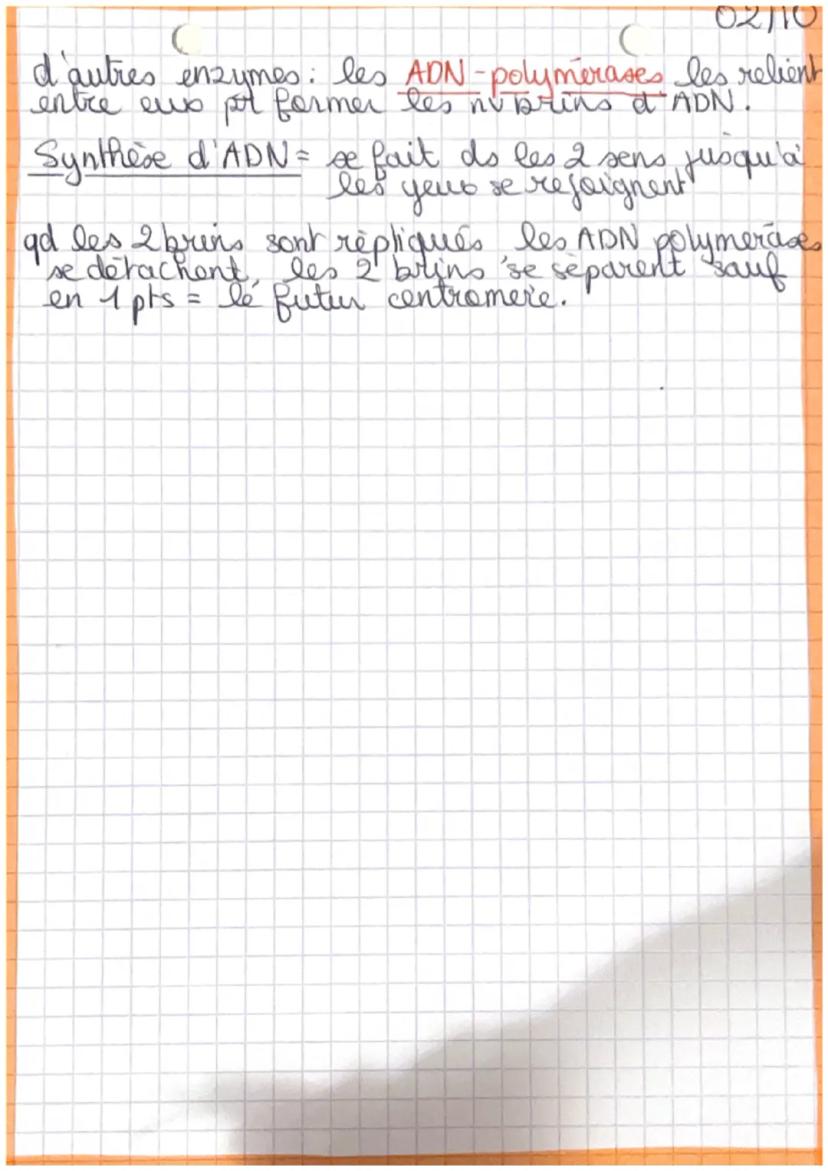 02/10
d'autres enzymes : les ADN-polymérases les relient
entre eux pr former les nv brins d'ADN.
Synthèse d'ADN = se fait ds les 2 sens jusqu'à
les yeux se rejoignent
qd les 2 brins sont répliqués les ADN polymérases
se détachent, les 2 brins se séparent sauf
en 1 pts = le futur centromère.